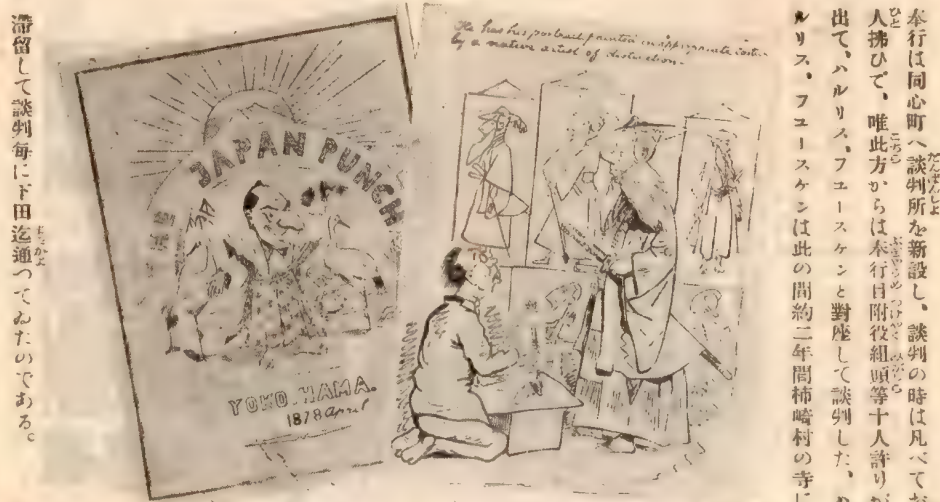 奉行は同心町へ談判所を新設し、談判の時は凡べてお
人拂ひで、唯此方からは奉行目附役組頭等十人許りが
出て、ハルリス、フユースケンと對座して談判した、ハ
ルリス、フユースケンは此の間約二年間柿崎村の寺に
He has his portrait painted in appropriate
by a native artist of distinction.
THE JAPAN PUNCH
YOKOHAMA.
1878 April
滯留して談判每に下田迄通つてゐたのである。